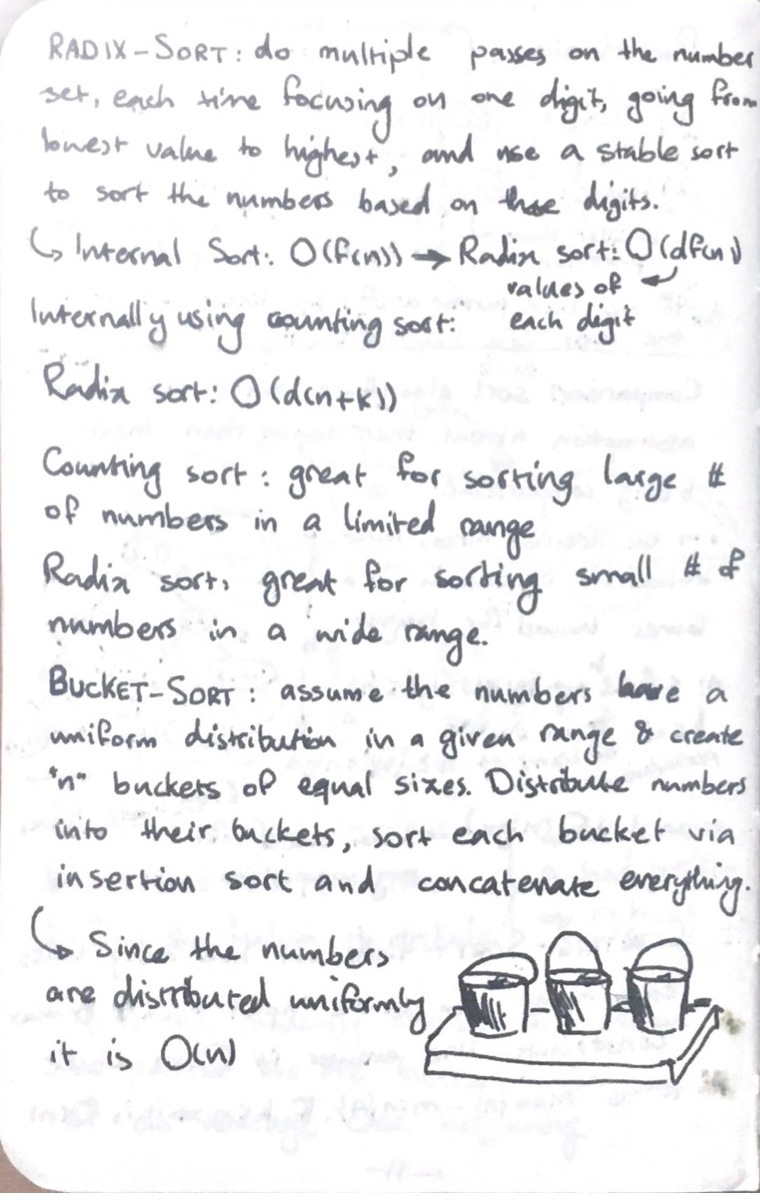 RADIX-SORT: do multiple passes on the number
set, each time focusing on one digit, going from
lowest value to highest, and use a stable sort
to sort the numbers based on those digits.
↳ Internal Sort: O(f(n)) → Radix sort: O(df(n))
values of
Internally using counting sort: each digit
Radix sort: O(d(n+k))
Counting sort: great for sorting large #
of numbers in a limited range
Radix sort: great for sorting small # of
numbers in a wide range.
BUCKET-SORT: assume the numbers have a
uniform distribution in a given range & create
"n" buckets of equal sizes. Distribute numbers
into their buckets, sort each bucket via
insertion sort and concatenate everything.
↳ Since the numbers
are distributed uniformly
it is O(n)